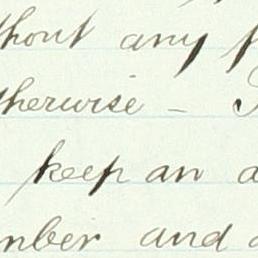 thout any
therwise –
keep an a
mber and